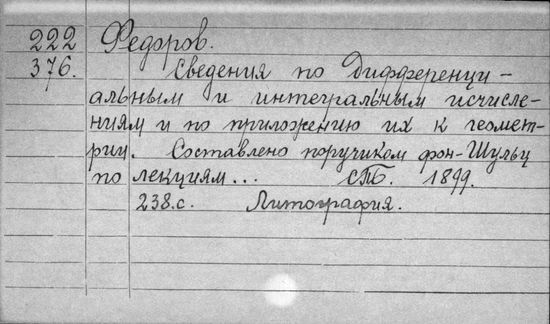 222 Федоров.
376. Сведения по Дифференци-
альным и интегральным исчисле-
ниям и по приложению их к геомет-
рии. Составлено поручиком фон-Шульц
по лекциям... СПБ. 1899.
238.с. Литография.